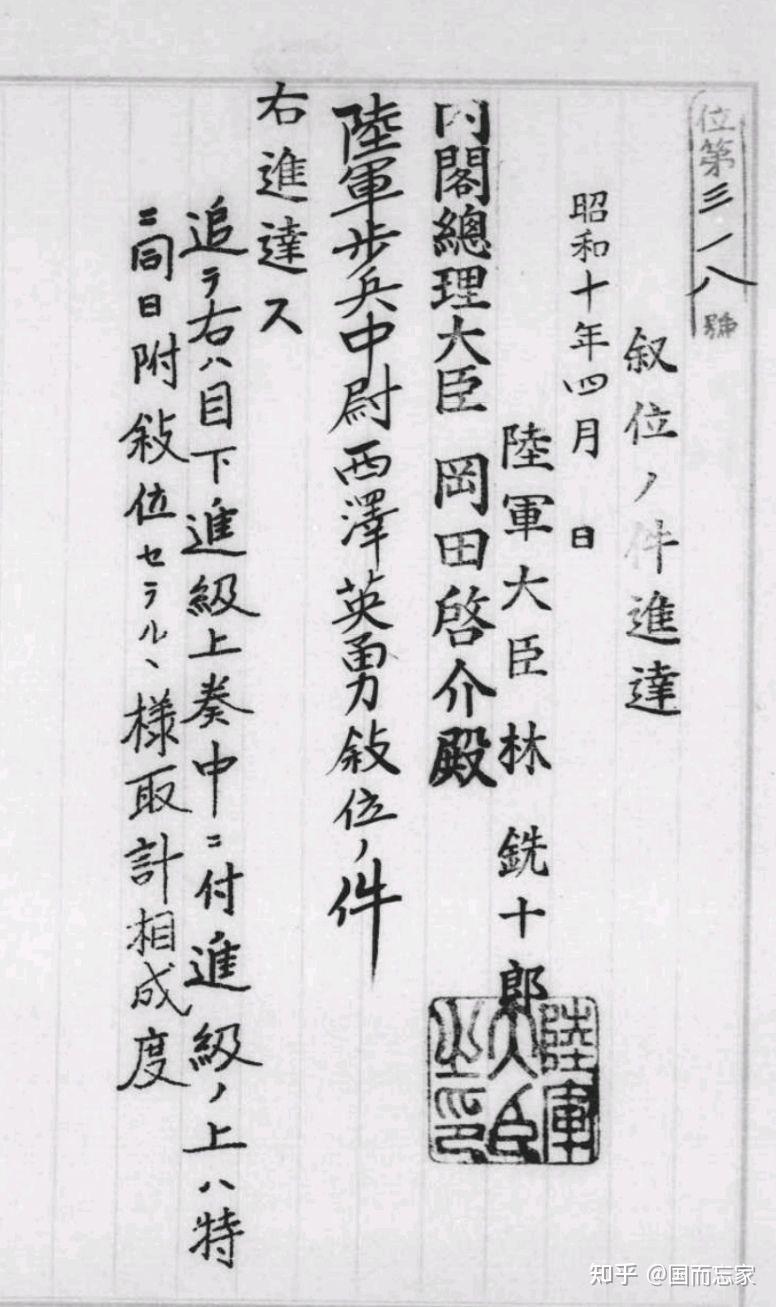 位第三一八號
叙位ノ件進達
昭和十年四月　日
陸軍大臣 林 銑十郎
陸軍大臣之印
内閣總理大臣 岡田啓介殿
陸軍歩兵中尉西澤英勇敍位ノ件
右進達ス
追テ右ハ目下進級上奏中ニ付進級ノ上ハ特
ニ同日附敍位セラルヽ様取計相成度
知乎 @国而忘家